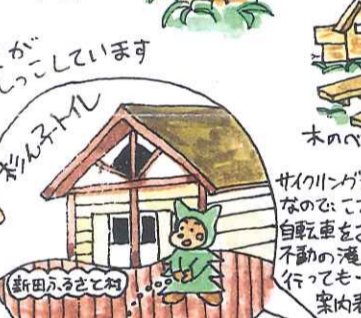 が
っこしています
杉ん子トイレ
新田ふるさと村
木のベ
サイクリング
なので、こ
自転車を
不動の滝
行っても
案内